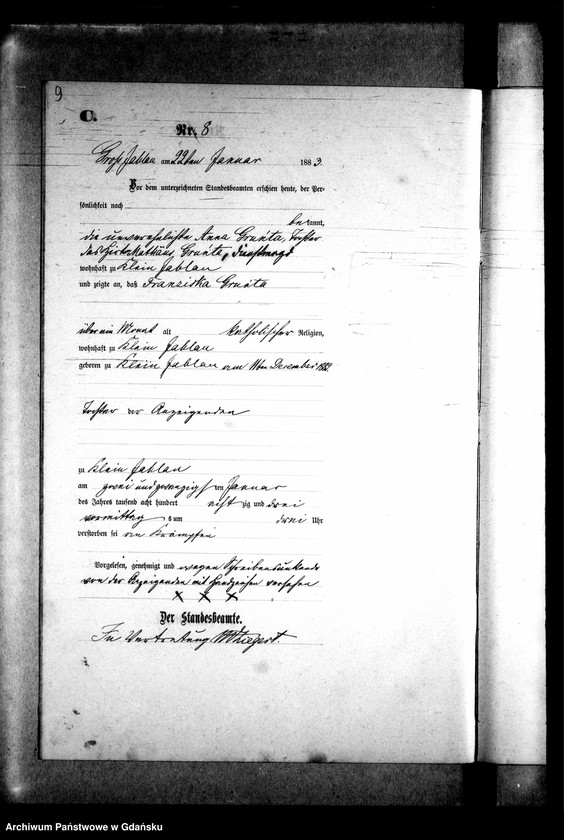 9
C.
Nr. 8
Groß Jablau am 22ten Januar 1883.
Vor dem unterzeichneten Standesbeamten erschien heute, der Per-
sönlichkeit nach
be kannt,
die unverehelichte Anna Gruńta, Tochter
des Mathäus Gruńta, Dienstmagd
wohnhaft zu Klein Jablau
und zeigte an, daß Franziska Gruńta
über ein Monat alt katholischer Religion,
wohnhaft zu Klein Jablau
geboren zu Klein Jablau am 11ten December 1882
Tochter der Anzeigenden
zu Klein Jablau
am zwei und zwanzigsten Januar
des Jahres tausend acht hundert acht zig und drei
vormittags um drei Uhr
verstorben sei an Krämpfen
Vorgelesen, genehmigt und wegen Schreibensunkunde
von der Anzeigenden mit Handzeichen versehen
X X X
Der Standesbeamte.
In Vertretung
Archiwum Państwowe w Gdańsku